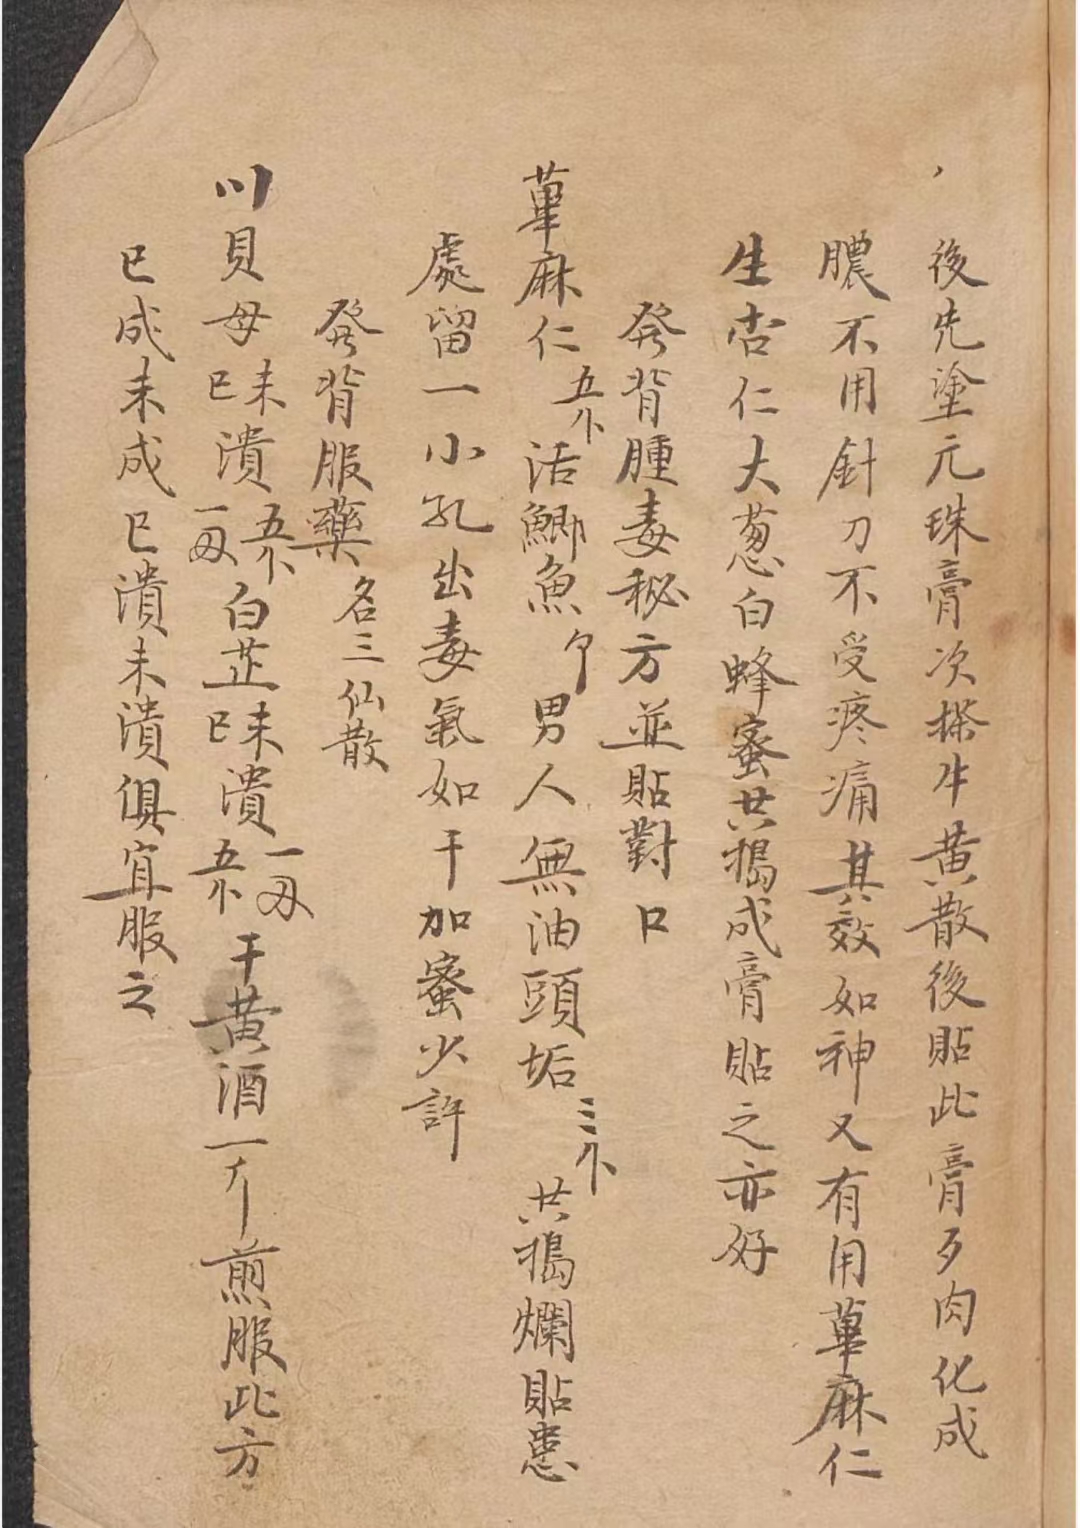 後先塗元珠膏次搽牛黄散後貼此膏歹肉化成
膿不用針刀不受疼痛其效如神又有用萆麻仁
生杏仁大葱白蜂蜜共搗成膏貼之亦好
發背腫毒秘方並貼對口
萆麻仁五个活鯽魚 男人無油頭垢三个共搗爛貼患
處留一小孔出毒氣如干加蜜少許
發背服藥名三仙散
川貝母未已潰五个一両白芷未已潰一両五个干黄酒一斤煎服此方
已成未成已潰未潰俱宜服之